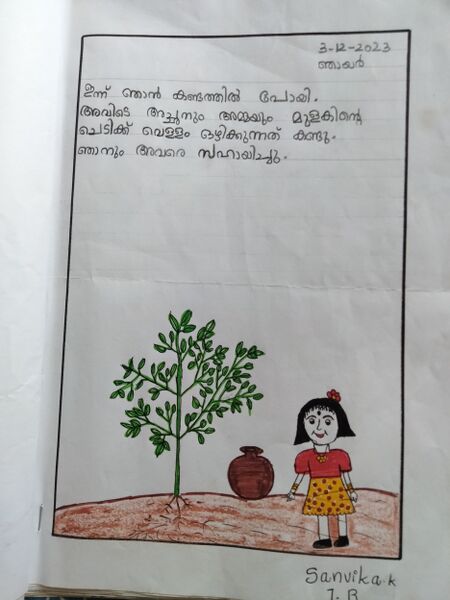 3-12-2023
ഞായർ
ഇന്ന് ഞാൻ കണ്ടത്തിൽ പോയി.
അവിടെ അച്ഛനും അമ്മയും മുളകിന്റെ
ചെടിക്ക് വെള്ളം ഒഴിക്കുന്നത് കണ്ടു.
ഞാനും അവരെ സഹായിച്ചു.
Sanvika.k
1. B